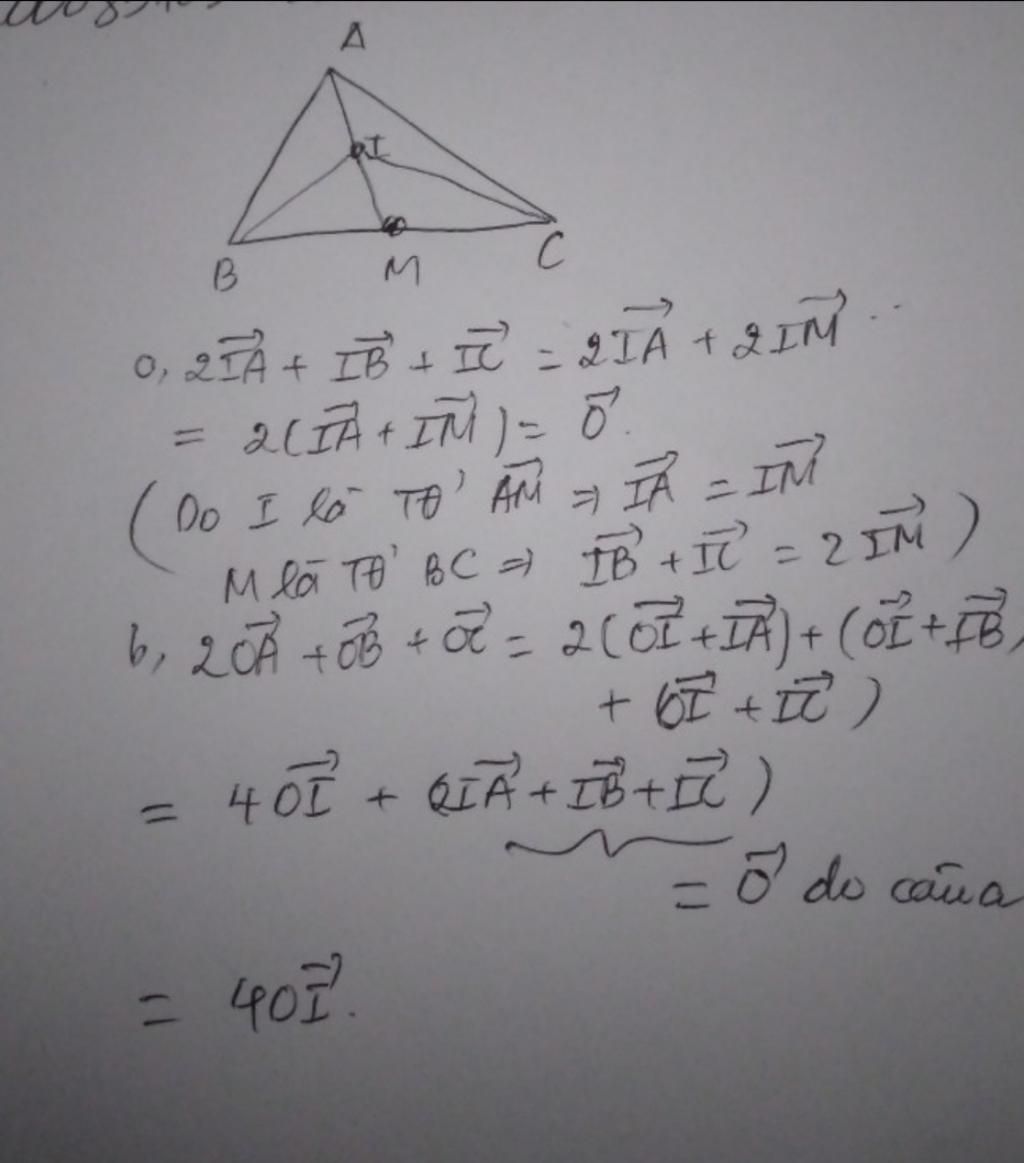 A
I
B M C
a, 2IA⃗ + IB⃗ + IC⃗ = 2IA⃗ + 2IM⃗
= 2(IA⃗ + IM⃗) = 0⃗.
(Do I là TĐ' AM⃗ ⇒ IA⃗ = IM⃗
M là TĐ' BC ⇒ IB⃗ + IC⃗ = 2IM⃗)
b, 2OA⃗ + OB⃗ + OC⃗ = 2(OI⃗ + IA⃗) + (OI⃗ + IB⃗
+ OI⃗ + IC⃗)
= 4OI⃗ + (2IA⃗ + IB⃗ + IC⃗)
= 0⃗ do câu a
= 4OI⃗.